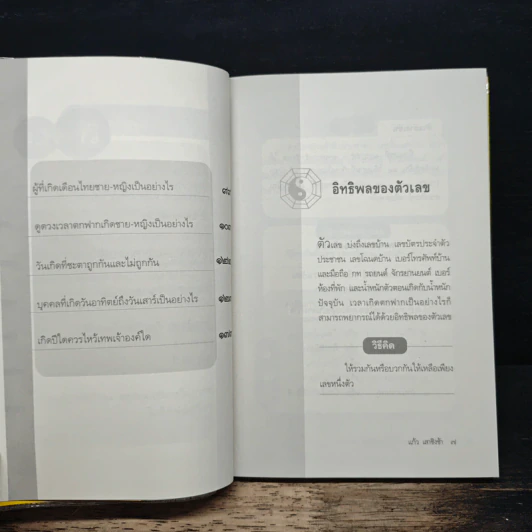 ผู้ที่เกิดเดือนไทยชาย-หญิงเป็นอย่างไร
ดูดวงเวลาตกฟากเกิดชาย-หญิงเป็นอย่างไร
วันเกิดที่ชะตาถูกกันและไม่ถูกกัน
บุคคลที่เกิดวันอาทิตย์ถึงวันเสาร์เป็นอย่างไร
เกิดปีใดควรไหว้เทพเจ้าองค์ใด
อิทธิพลของตัวเลข
ตัวเลข บ่งถึงเลขบ้าน เลขบัตรประจำตัว
ประชาชน เลขโฉนดบ้าน เบอร์โทรศัพท์บ้าน
และมือถือ กท รถยนต์ จักรยานยนต์ เบอร์
ห้องที่พัก และน้ำหนักตัวตอนเกิดกับน้ำหนัก
ปัจจุบัน เวลาเกิดตกฟากเป็นอย่างไรก็
สามารถพยากรณ์ได้ด้วยอิทธิพลของตัวเลข
วิธีคิด
ให้รวมกันหรือบวกกันให้เหลือเพียง
เลขหนึ่งตัว
แก้ว เสาชิงช้า ๗